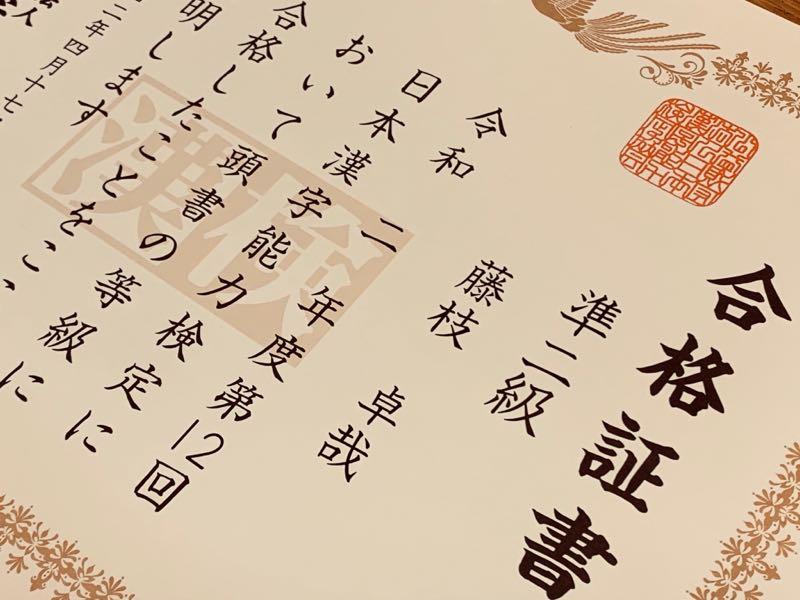 合格証書
準二級
藤枝 卓哉
令和二年度第12回
日本漢字能力検定に
おいて頭書の等級に
合格したことをこ
明します
二年四月十七
法人
漢検